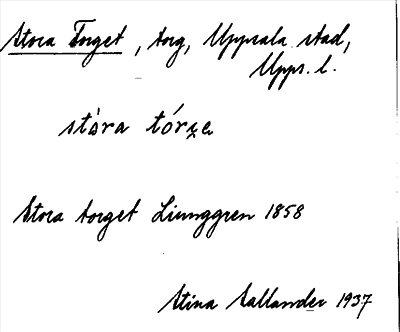 Stora Torget, torg, Uppsala stad,
Upps. l.
stòra tórʒe
Stora torget Ljunggren 1858
Stina Sallander 1937